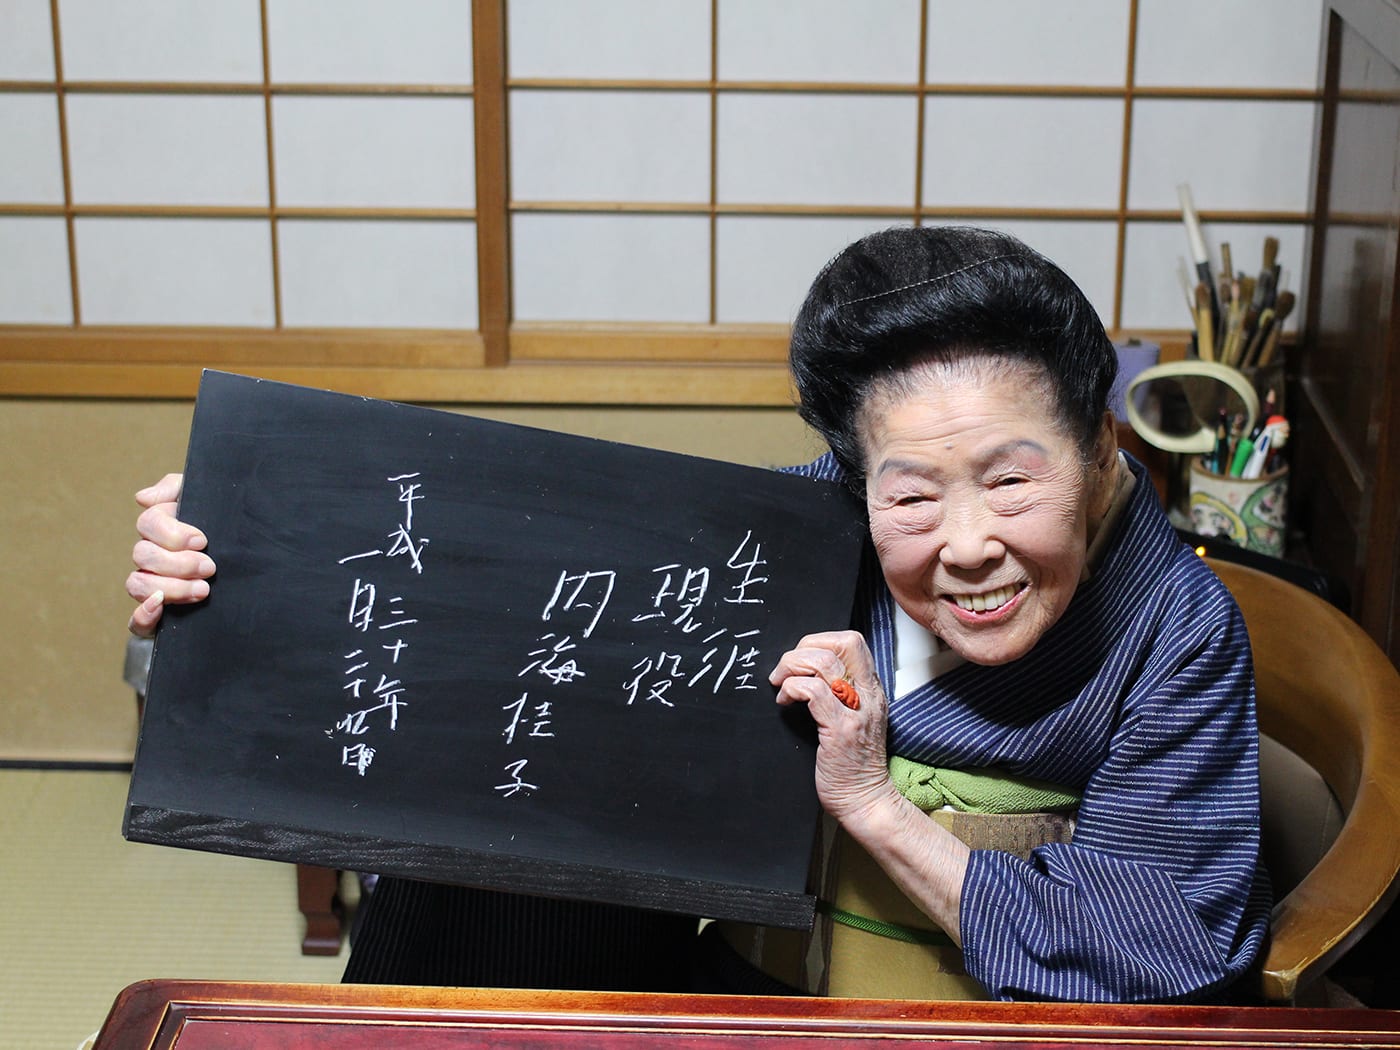 生涯
現役
内海桂子
平成三十年
一月二十九日